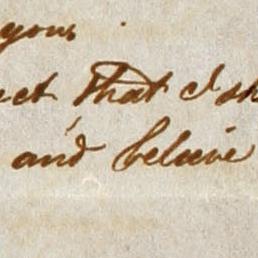 your
ect that I sh
and believe